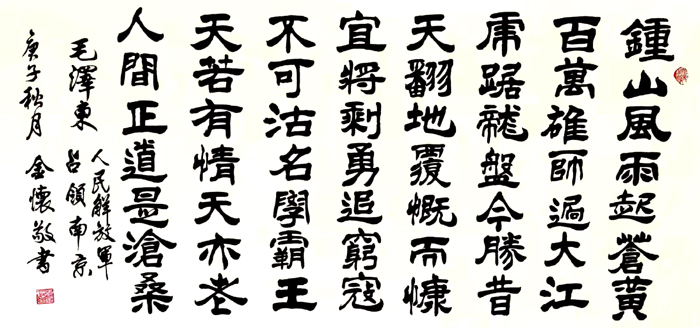 鍾山風雨起蒼黃
百萬雄師過大江
虎踞龍盤今勝昔
天翻地覆慨而慷
宜將剩勇追窮寇
不可沽名學霸王
天若有情天亦老
人間正道是滄桑
毛澤東
人民解放軍
占領南京
庚子秋月 金懷敬書